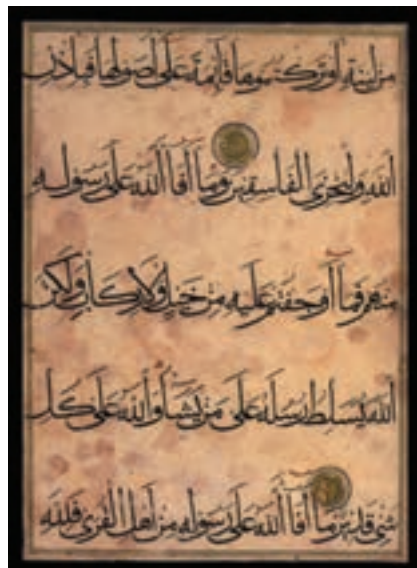 من لينة أو تركتموها قائمة على أصولها فبإذن
الله وليخزي الفاسقين وما أفآ الله على رسوله
منهم فمآ أوجفتم عليه من خيل ولا ركاب ولكن
الله يسلط رسله على من يشآ والله على كل
شي قدير مآ أفآ الله على رسوله من أهل القرى فلله